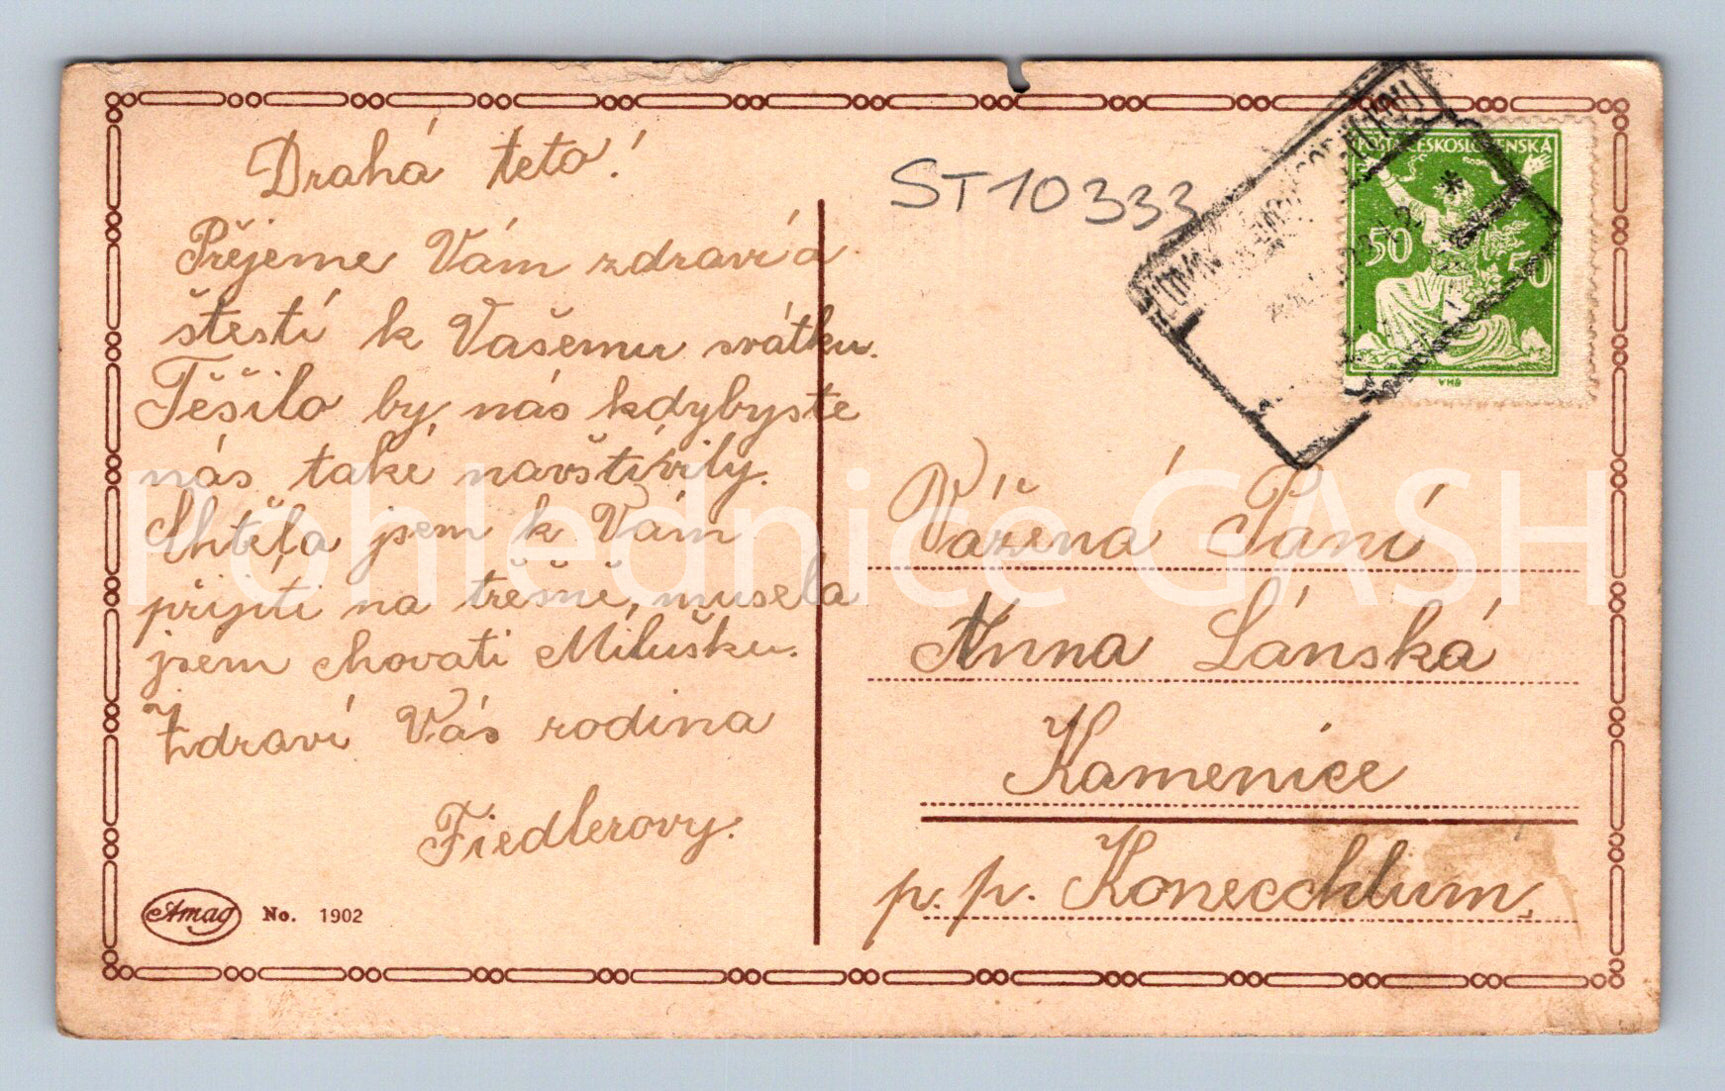 Drahá teto!
Přejeme Vám zdraví a
štestí k Vašemu svátku.
Těšilo by nás kdybyste
nás také navštívily.
Chtěla jsem k Vám
přijíti na třešně, musela
jsem chovati Milušku.
Zdraví Vás rodina
Fiedlerovy.
Amag No. 1902
ST10333
POŠTA ČESKOSLOVENSKÁ
50 50
VHB
Vážená Paní
Anna Lánská
Kamenice
p. p. Konecchlum.
Pohlednice GASH